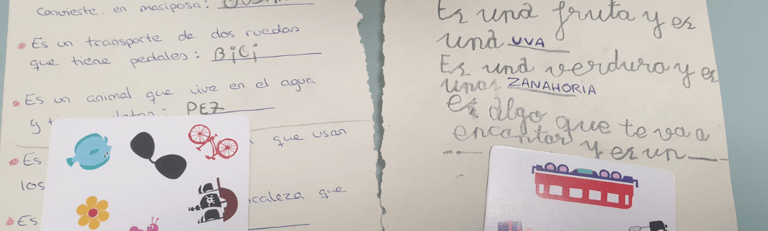 Convierte en mariposa:
Es un transporte de dos ruedas
que tiene pedales: BiCi
Es un animal que vive en el agua
y
PEZ
Es
que usan
los
que
Es
Es una fruta y es
una UVA
Es una verdura y es
una ZANAHORIA
es algo que te va a
encantar y es un